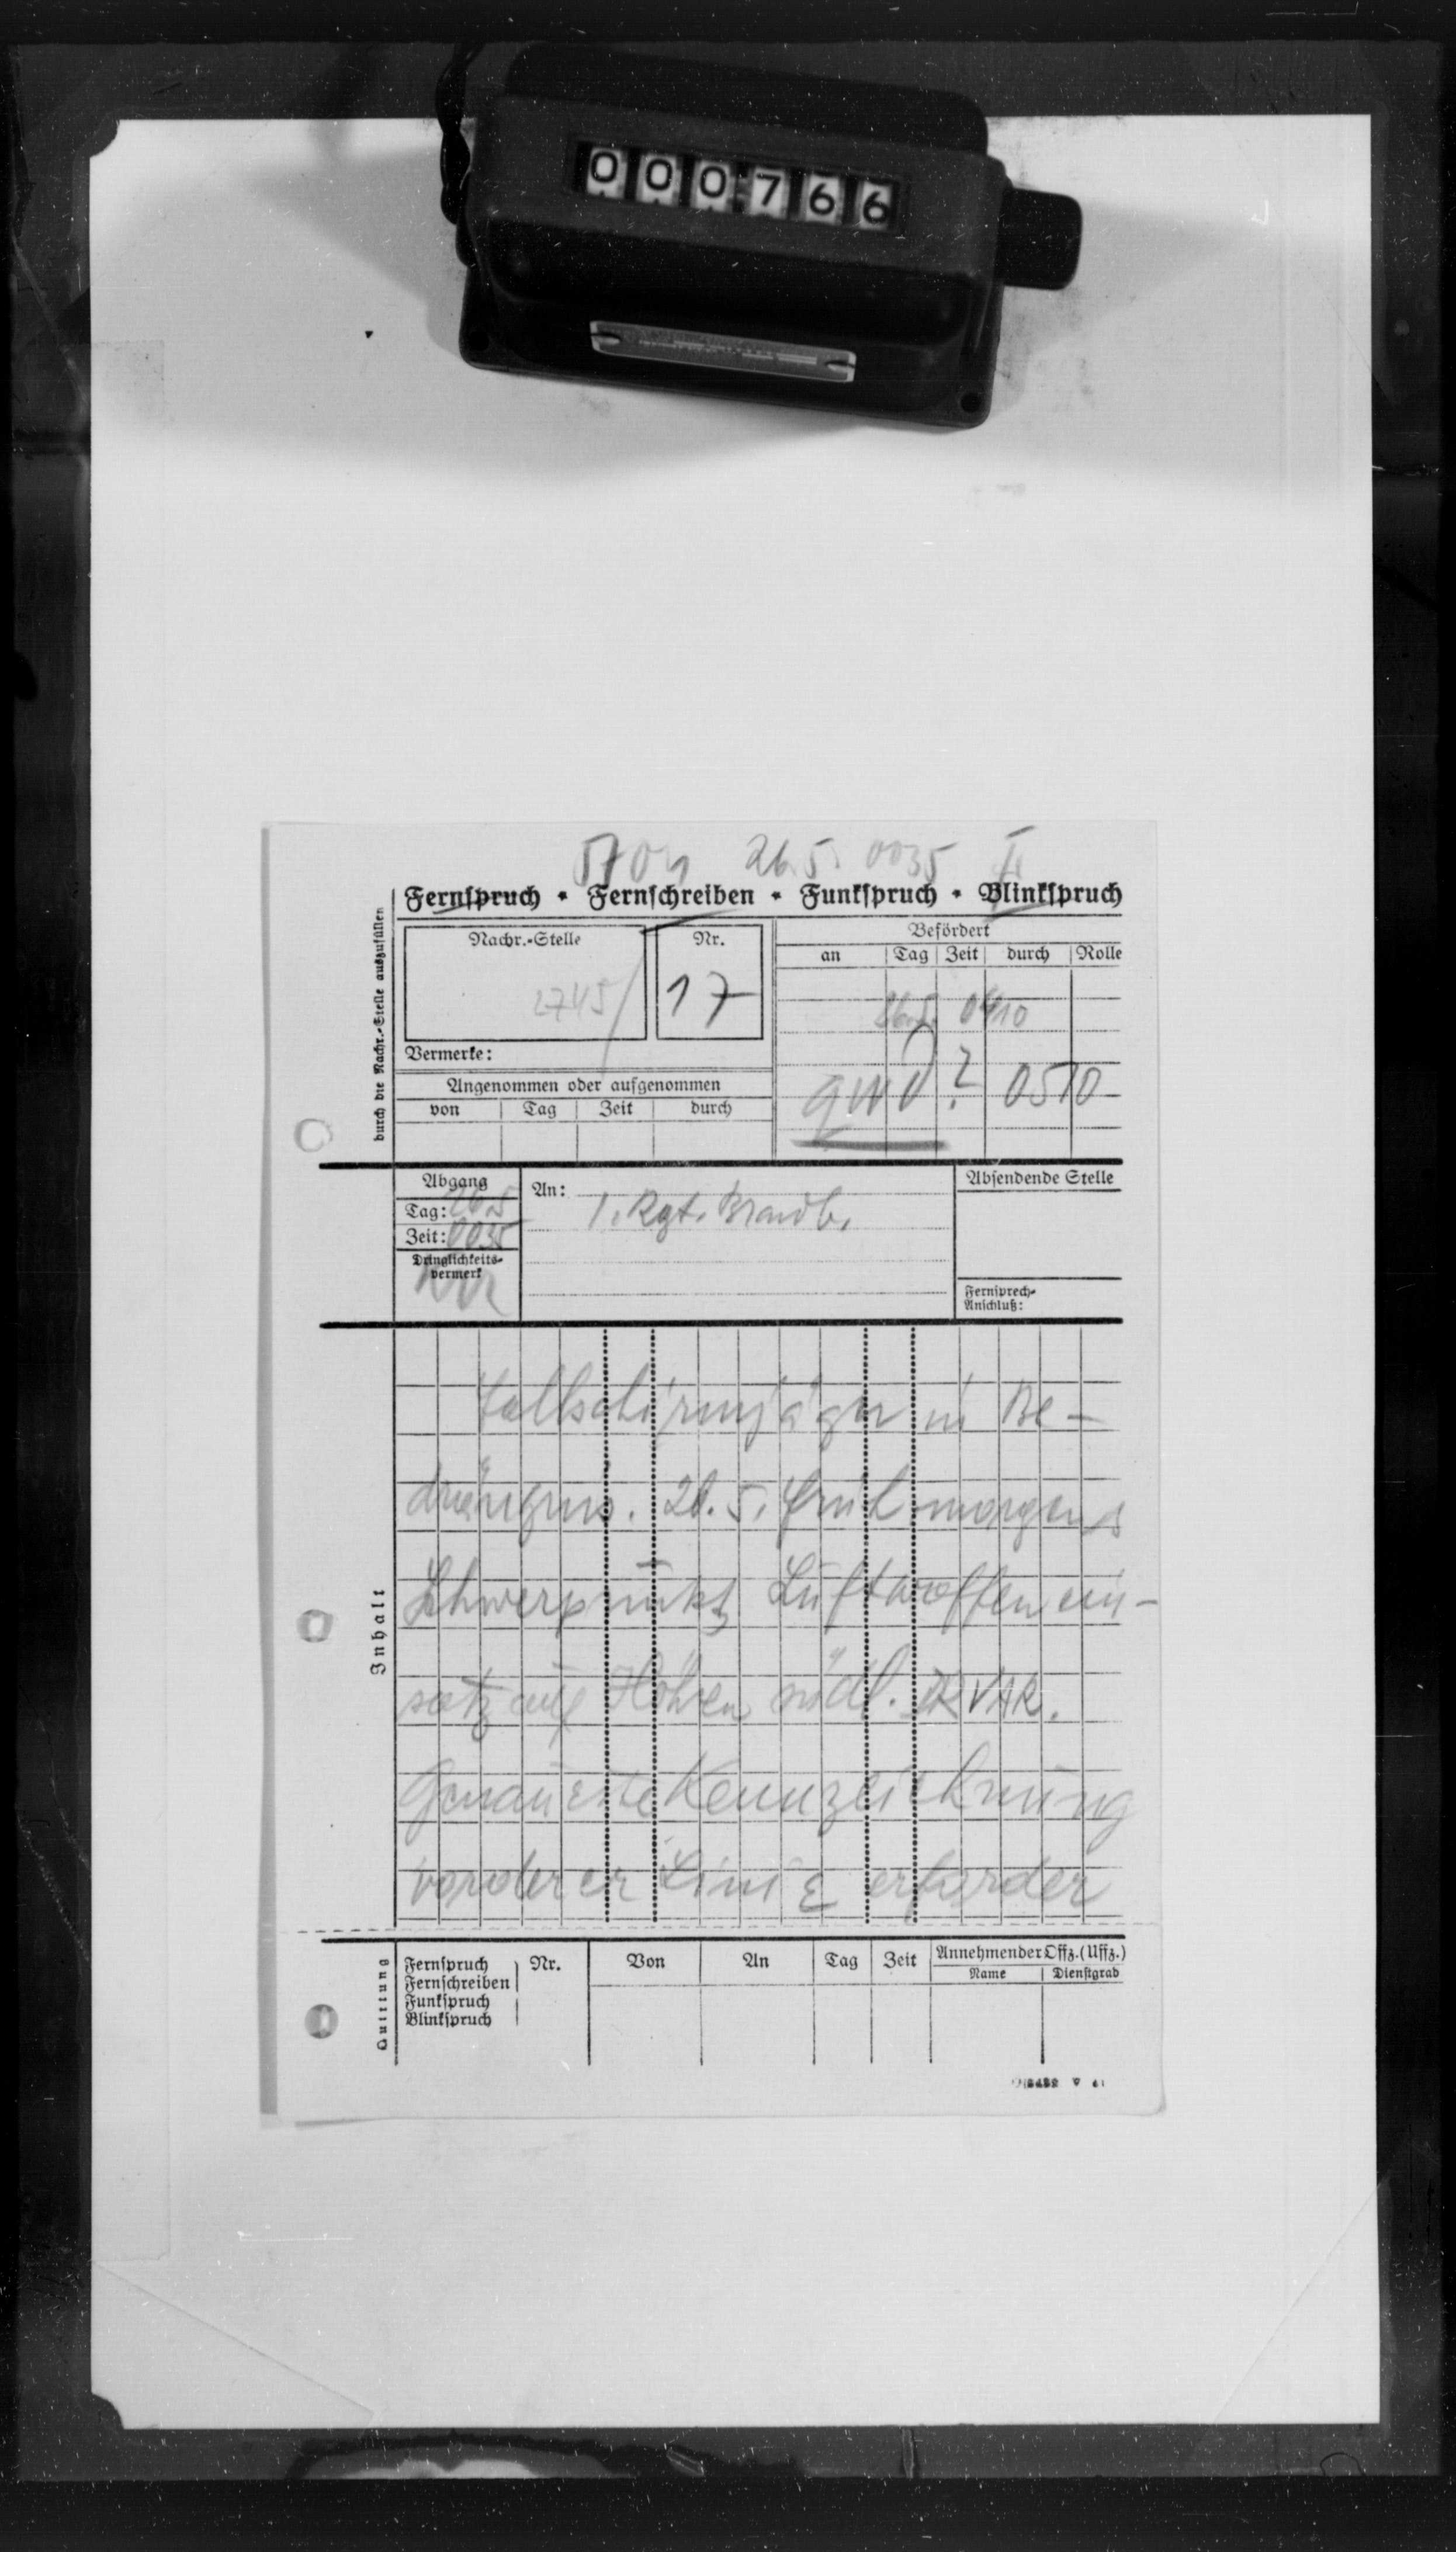 000766
26.5. 0035
Fernspruch • Fernschreiben • Funkspruch • Blinkspruch
durch die Nachr.-Stelle auszufüllen
Nachr.-Stelle
Nr.
Befördert
an Tag Zeit durch Rolle
2745
17
26.5. 0410
Vermerke:
? 0510
Angenommen oder aufgenommen
von Tag Zeit durch
Abgang
Tag: 26.5
Zeit: 0035
Dringlichkeits-
vermerk
An: 1. Rgt. Brandb.
Absendende Stelle
Fernsprech-
Anschluß:
Inhalt
Fallschirmjäger in Be-
drängnis. früh morgens
Schwerpunkt Luftwaffenein-
satz auf Höhen südl. DRVAR.
Genaueste Kennzeichnung
vorderer Linie erforder
Quittung
Fernspruch
Fernschreiben
Funkspruch
Blinkspruch
Nr.
Von
An
Tag
Zeit
Annehmender Offz. (Uffz.)
Name Dienstgrad